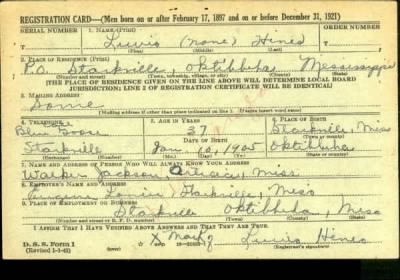 REGISTRATION CARD—(Men born on or after February 17, 1897 and on or before December 31, 1921)
SERIAL NUMBER 1. NAME (Print) ORDER NUMBER
Lewis (none) Hines
(First) (Middle) (Last)
2. PLACE OF RESIDENCE (Print)
P.O. Starkville, Oktibbeha Mississippi
(Number and street) (Town, township, village, or city) (County) (State)
[THE PLACE OF RESIDENCE GIVEN ON THE LINE ABOVE WILL DETERMINE LOCAL BOARD
JURISDICTION; LINE 2 OF REGISTRATION CERTIFICATE WILL BE IDENTICAL]
3. MAILING ADDRESS
Same
[Mailing address if other than place indicated on line 2. If same insert word same]
4. TELEPHONE 5. AGE IN YEARS 6. PLACE OF BIRTH
Blue Goose 37 Starkville, Miss
DATE OF BIRTH (Town or county)
Starkville Jan. 10, 1905 Oktibbeha
(Exchange) (Number) (Mo.) (Day) (Yr.) (State or country)
7. NAME AND ADDRESS OF PERSON WHO WILL ALWAYS KNOW YOUR ADDRESS
Walker Jackson Artesia, Miss
8. EMPLOYER'S NAME AND ADDRESS
Starkville, Miss
9. PLACE OF EMPLOYMENT OR BUSINESS
Starkville Oktibbeha, Miss
(Number and street or R. F. D. number) (Town) (County) (State)
I AFFIRM THAT I HAVE VERIFIED ABOVE ANSWERS AND THAT THEY ARE TRUE.
D. S. S. Form 1 X Mark of Lewis Hines
(Revised 1-1-42) (over) (Registrant's signature)